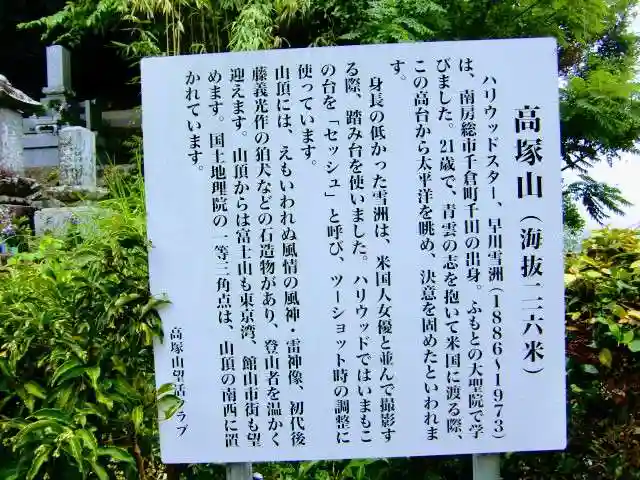 高塚山（海抜二一六米）
ハリウッドスター、早川雪洲（1886～1973）
は、南房総市千倉町千田の出身。ふもとの大聖院で学
びました。21歳で、青雲の志を抱いて米国に渡る際、
この高台から太平洋を眺め、決意を固めたといわれま
す。
身長の低かった雪洲は、米国人女優と並んで撮影す
る際、踏み台を使いました。ハリウッドではいまもこ
の台を「セッシュ」と呼び、ツーショット時の調整に
使っています。
山頂には、えもいわれぬ風情の風神・雷神像、初代後
藤義光作の狛犬などの石造物があり、登山者を温かく
迎えます。山頂からは富士山も東京湾、館山市街も望
めます。国土地理院の一等三角点は、山頂の南西に置
かれています。
高塚山望活クラブ